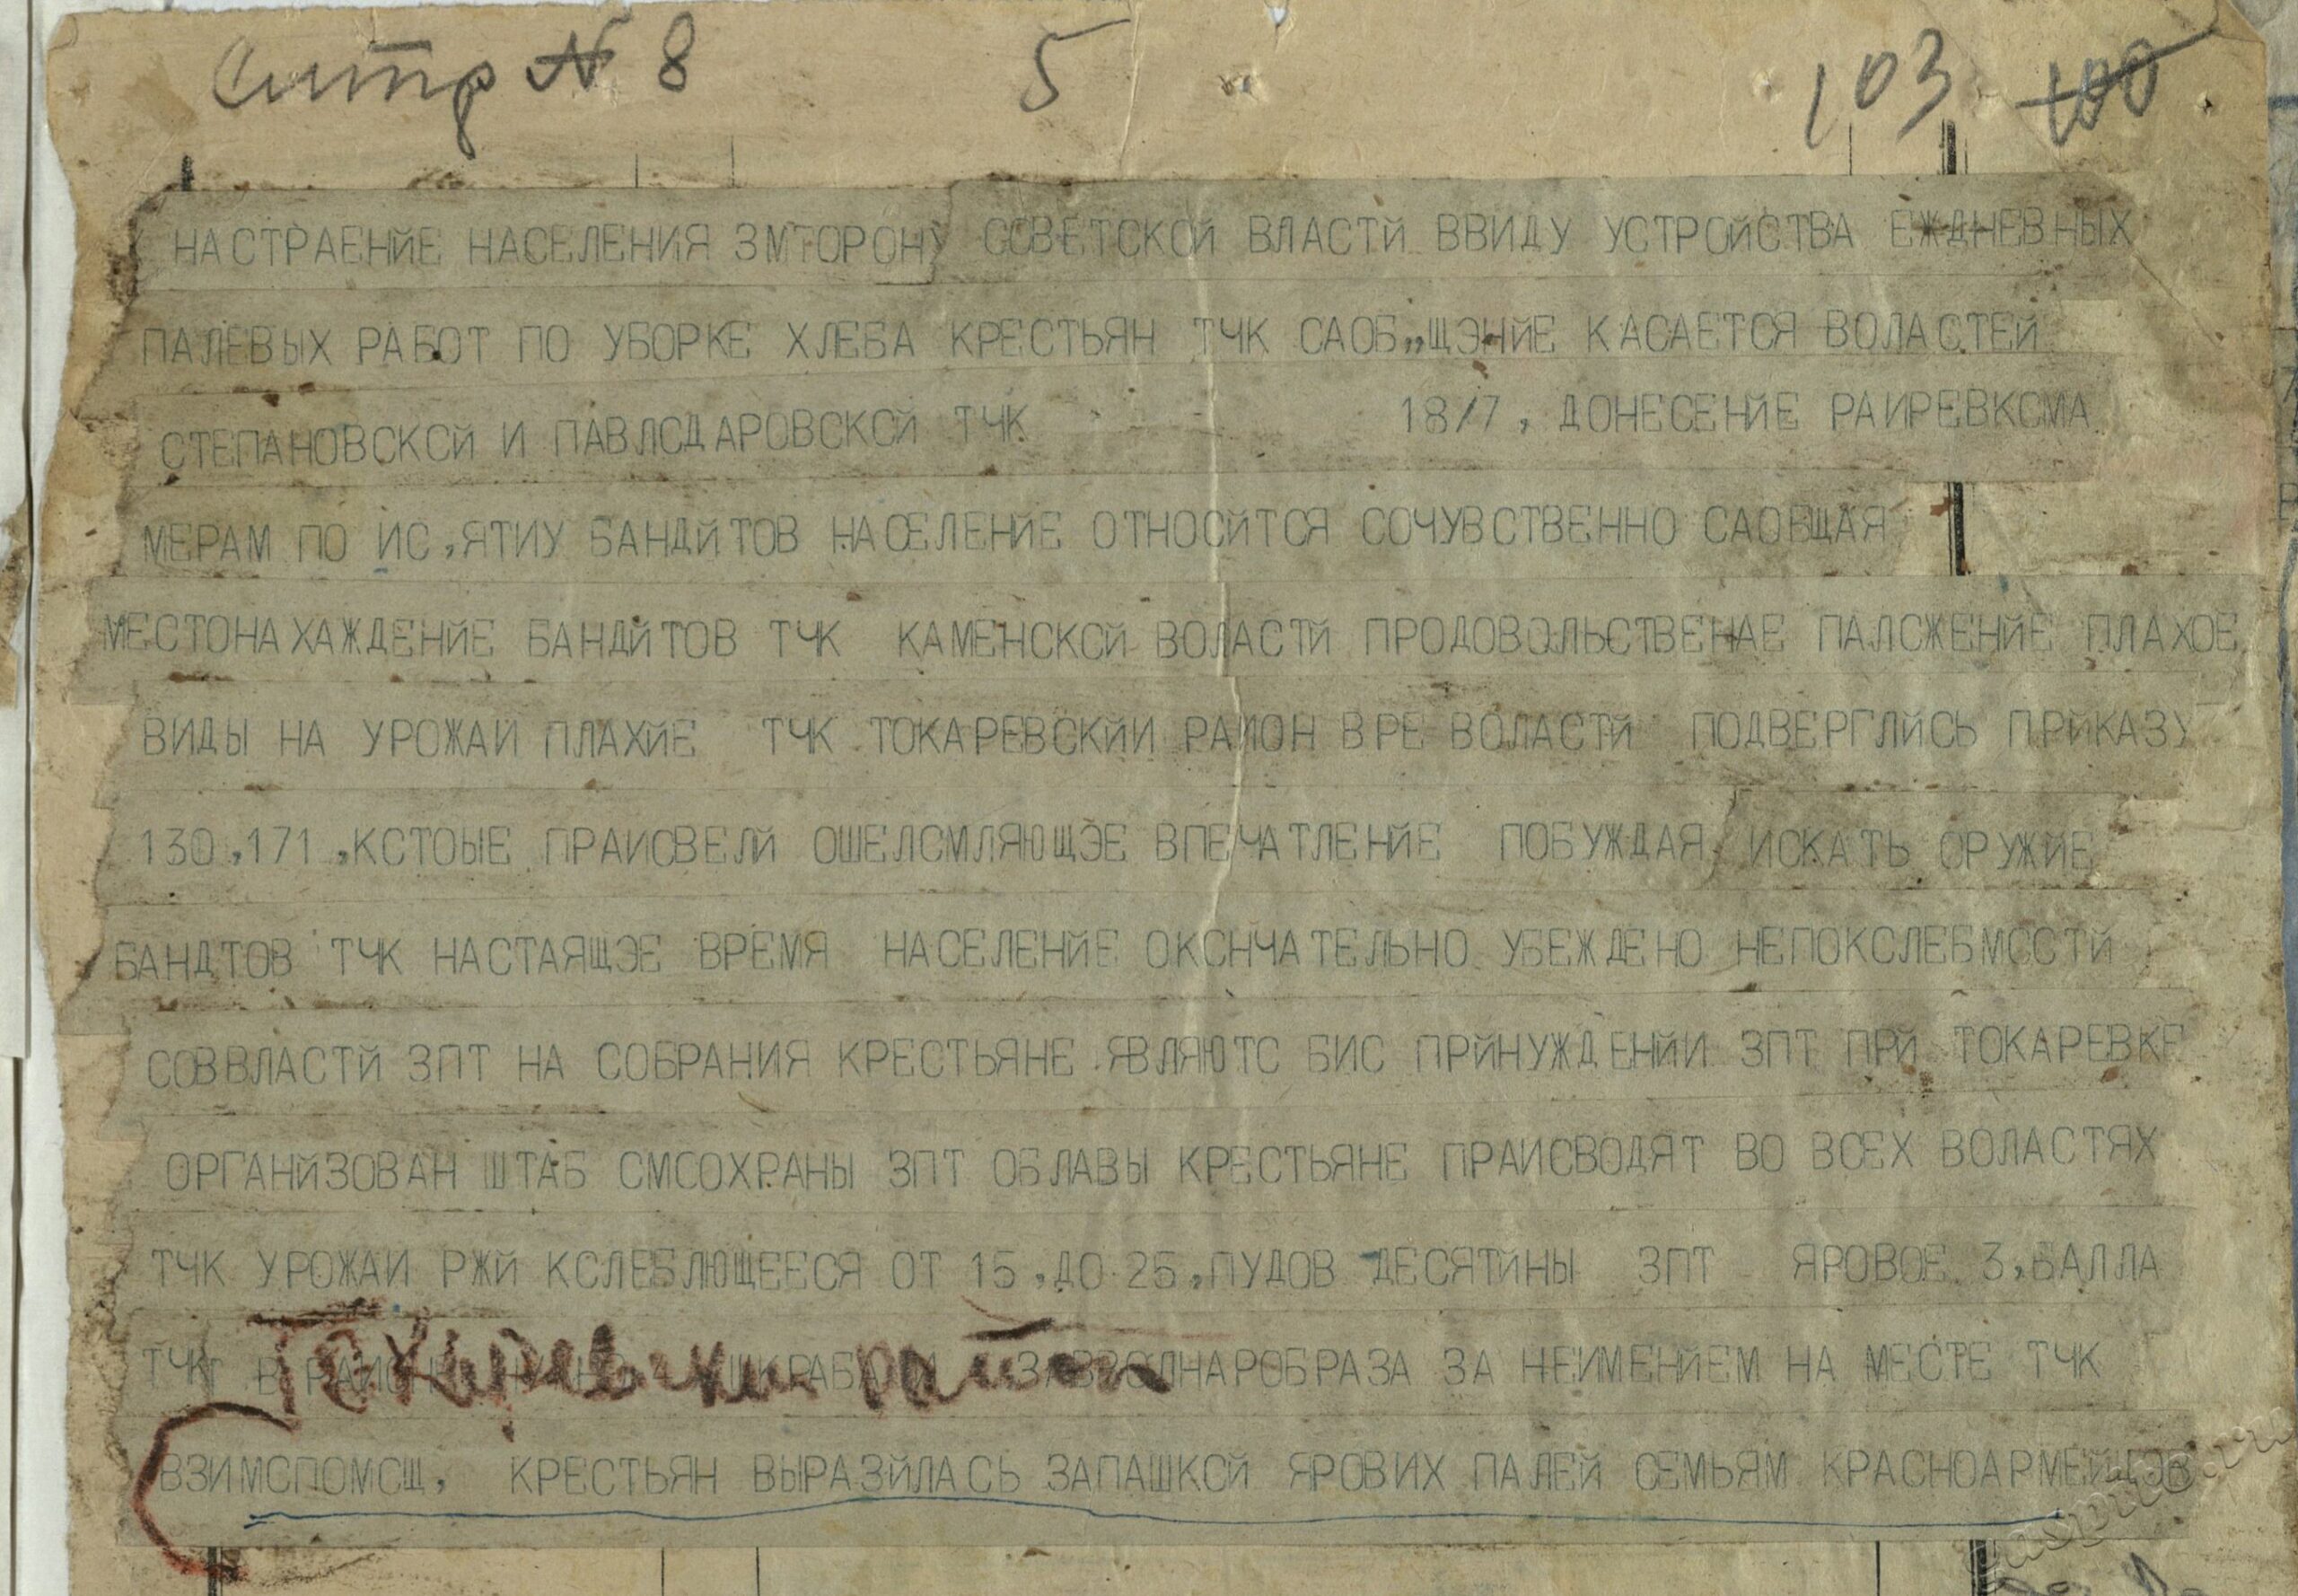 Ситр № 8 5 103 100
НАСТРАЕНЙЕ НАСЕЛЕНИЯ ЗМТОРОНУ СОВЕТСКОЙ ВЛАСТЙ ВВИДУ УСТРОЙСТВА ЕЖДНЕВНЫХ
ПАЛЕВЫХ РАБОТ ПО УБОРКЕ ХЛЕБА КРЕСТЬЯН ТЧК САОБ,,ЩЭНЙЕ КАСАЕТСЯ ВОЛАСТЕЙ
СТЕПАНОВСКСЙ И ПАВЛСДАРОВСКСЙ ТЧК 18/7, ДОНЕСЕНЙЕ РАИРЕВКСМА
МЕРАМ ПО ИС,ЯТИУ БАНДЙТОВ НАСЕЛЕНЙЕ ОТНОСЙТСЯ СОЧУВСТВЕННО САОБЩАЯ
МЕСТОНАХАЖДЕНЙЕ БАНДЙТОВ ТЧК КАМЕНСКСЙ ВОЛАСТЙ ПРОДОВОЛЬСТВЕНАЕ ПАЛСЖЕНЙЕ ПЛАХОЕ
ВИДЫ НА УРОЖАИ ПЛАХЙЕ ТЧК ТОКАРЕВСКЙИ РАИОН ВРЕ ВОЛАСТЙ ПОДВЕРГЛЙСЬ ПРЙКАЗУ
130,171,КСТОЫЕ ПРАИСВЕЛЙ ОШЕЛСМЛЯЮЩЭЕ ВПЕЧАТЛЕНЙЕ ПОБУЖДАЯ ИСКАТЬ ОРУЖЙЕ
БАНДТОВ ТЧК НАСТАЯЩЭЕ ВРЕМЯ НАСЕЛЕНЙЕ ОКСНЧАТЕЛЬНО УБЕЖДЕНО НЕПОКСЛЕБМССТЙ
СОВВЛАСТЙ ЗПТ НА СОБРАНИЯ КРЕСТЬЯНЕ ЯВЛЯЮТС БИС ПРЙНУЖДЕНЙИ ЗПТ ПРЙ ТОКАРЕВКЕ
ОРГАНЙЗОВАН ШТАБ СМСОХРАНЫ ЗПТ ОБЛАВЫ КРЕСТЬЯНЕ ПРАИСВОДЯТ ВО ВСЕХ ВОЛАСТЯХ
ТЧК УРОЖАИ РЖЙ КСЛЕБЛЮЩЕЕСЯ ОТ 15,ДО 25,ПУДОВ ДЕСЯТЙНЫ ЗПТ ЯРОВОЕ 3,БАЛЛА
ТЧК Токаревский район ЗАВВОЛНАРОБРАЗА ЗА НЕИМЕНЙЕМ НА МЕСТЕ ТЧК
ВЗИМСПОМСЩ, КРЕСТЬЯН ВЫРАЗЙЛАСЬ ЗАПАШКСЙ ЯРОВИХ ПАЛЕЙ СЕМЬЯМ КРАСНОАРМЕЙЦЭВ